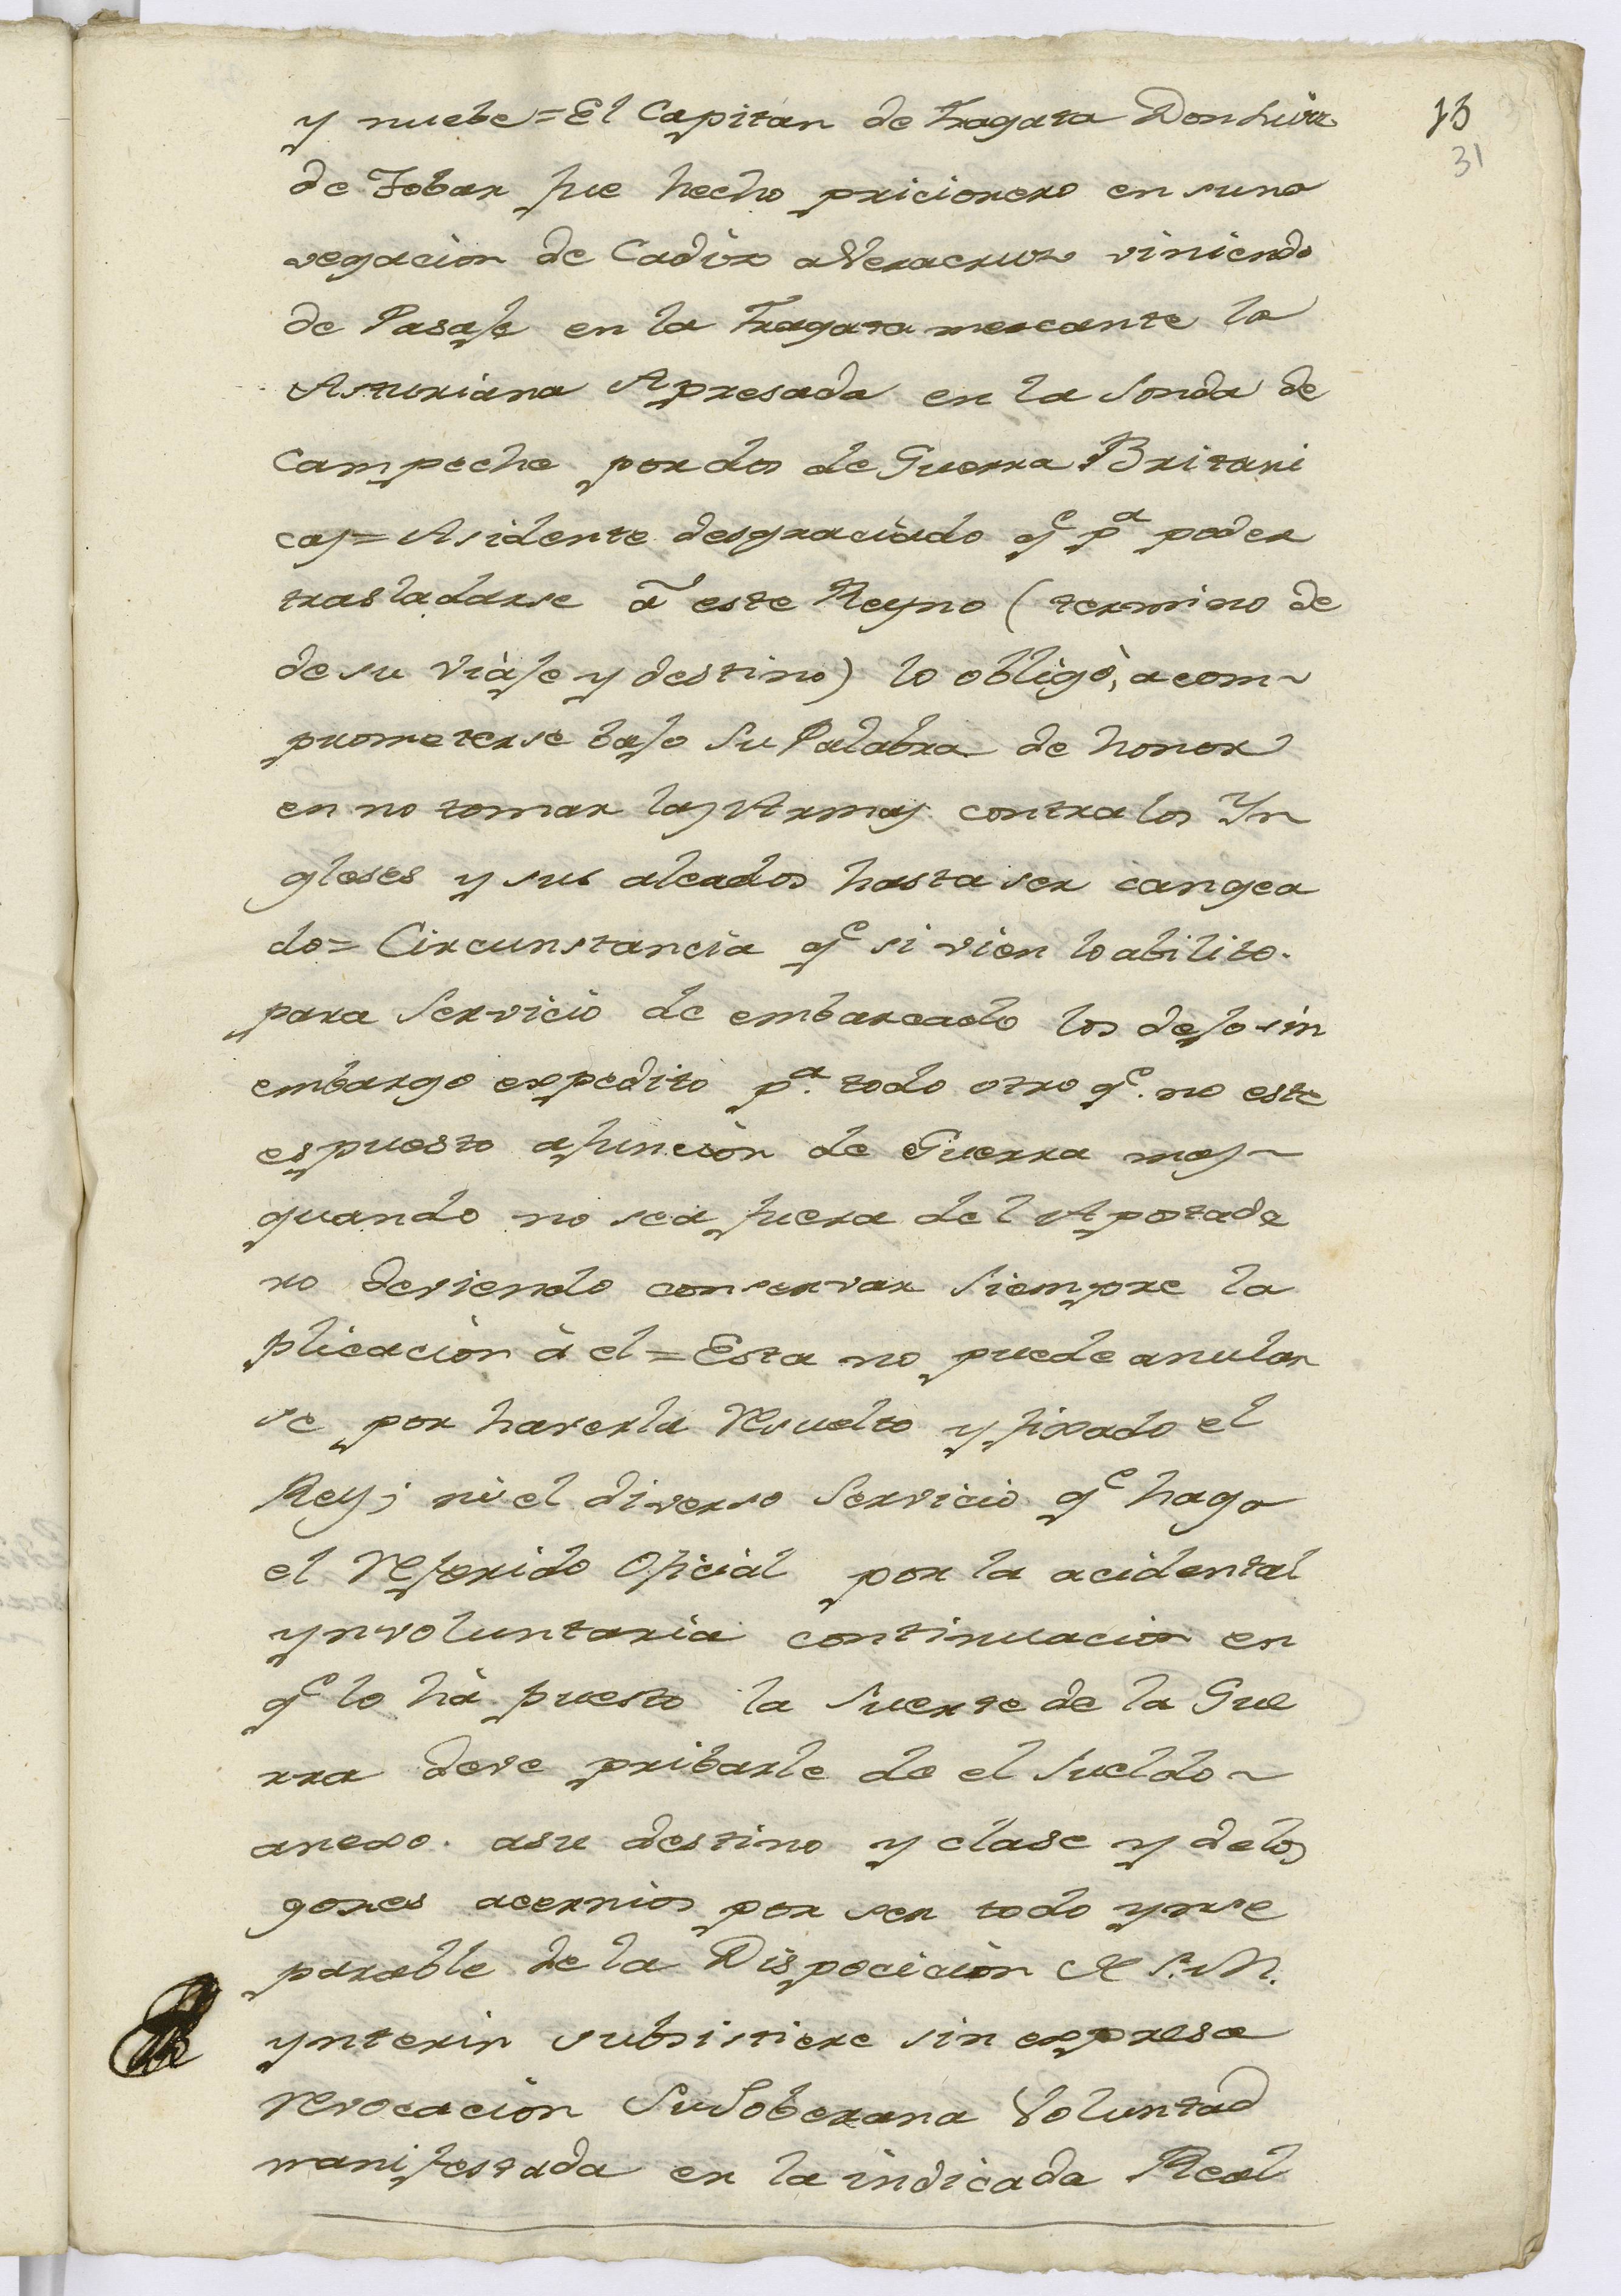 15
31
y nuebe = El Capitan de Fragata Don Luix
de Tobar fue hecho pricionero en suna
vegacion de Cadix a Veracruz viniendo
de Pasaje en la Fragata mercante la
Asturiana Apresada en la Sonda de
Campeche por dos de Guerra Britani
cas = Asidente desgraciado qe pa poder
trasladarse a este Reyno (termino de
de su viaje y destino) lo obligò, a com~
prometerse bajo su Palabra de honor
en no tomar las Armas contra los Yn
gleses y sus aleados hasta ser cangea
do = Circunstancia qe si vien lo abilito.
para Servicio de embarcado los dejo sin
embargo expedito pa. todo otro qe. no este
espuesto afuncion de Guerra mas~
quando no sea fuera del Apostade
ro deviendo conservar siempre la
plicacion à el = Esta no puede anular
se por haverla Resuelto y fixado el
Rey; ni el diverso Servicio qe haga
el Referido Oficial por la acidental
ynvoluntaria continuacion en
qe lo hà puesto la Suerte de la Gue
rra deve pribarle de el Sueldo~
anexo. asu destino y clase y delos
goses acernios por ser todo ynse
parable de la Disposicion de S.M.
ynterin subsistiere sin expresa
revocacion Su Soberana Voluntad
manifestada en la indicada Real